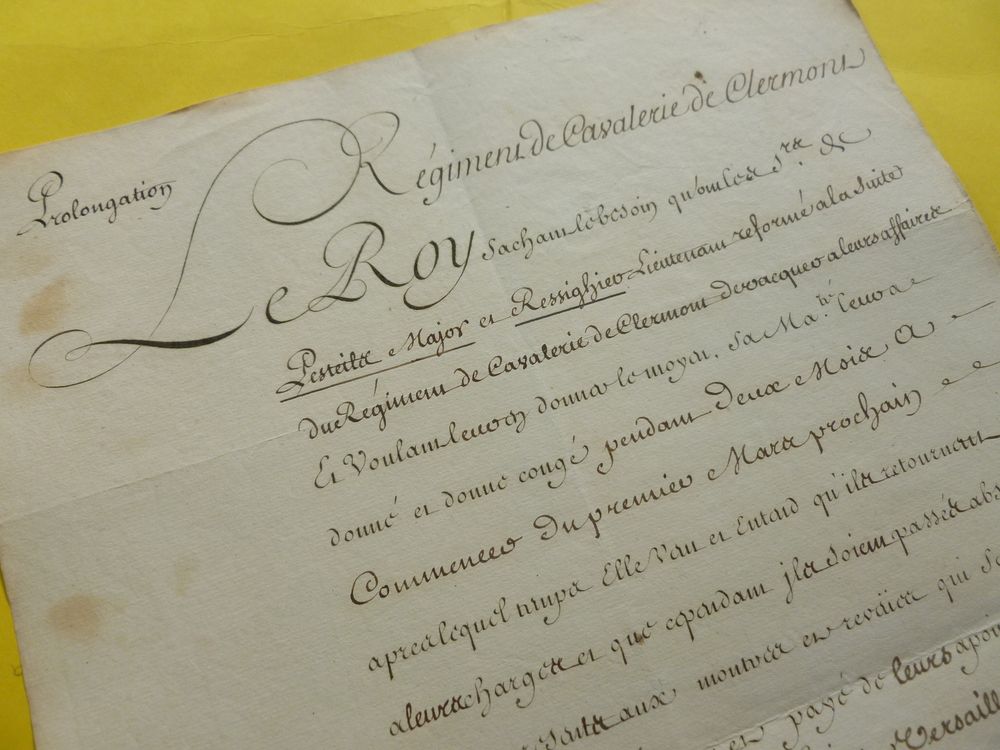 Régiment de Cavalerie de Clermont
Prolongation
Le Roy Sachant le besoin qu'ont les Srs. de
Lesteils Major et Ressighier Lieutenant reformé a la Suite
du Régiment de Cavalerie de Clermont de vacquer a leurs affaires
Et Voulant leur en donner le moyen, Sa Maté. leur a
donné et donne congé pendant deux Mois A
Commencer Du premier Mars prochain
apres lequel temps Elle Veut et Entend qu'ils retournent
a leurs charges et que cependant jls soient passés abs
aux montres et reveües qui Se
payé de leurs apoi
Versaill